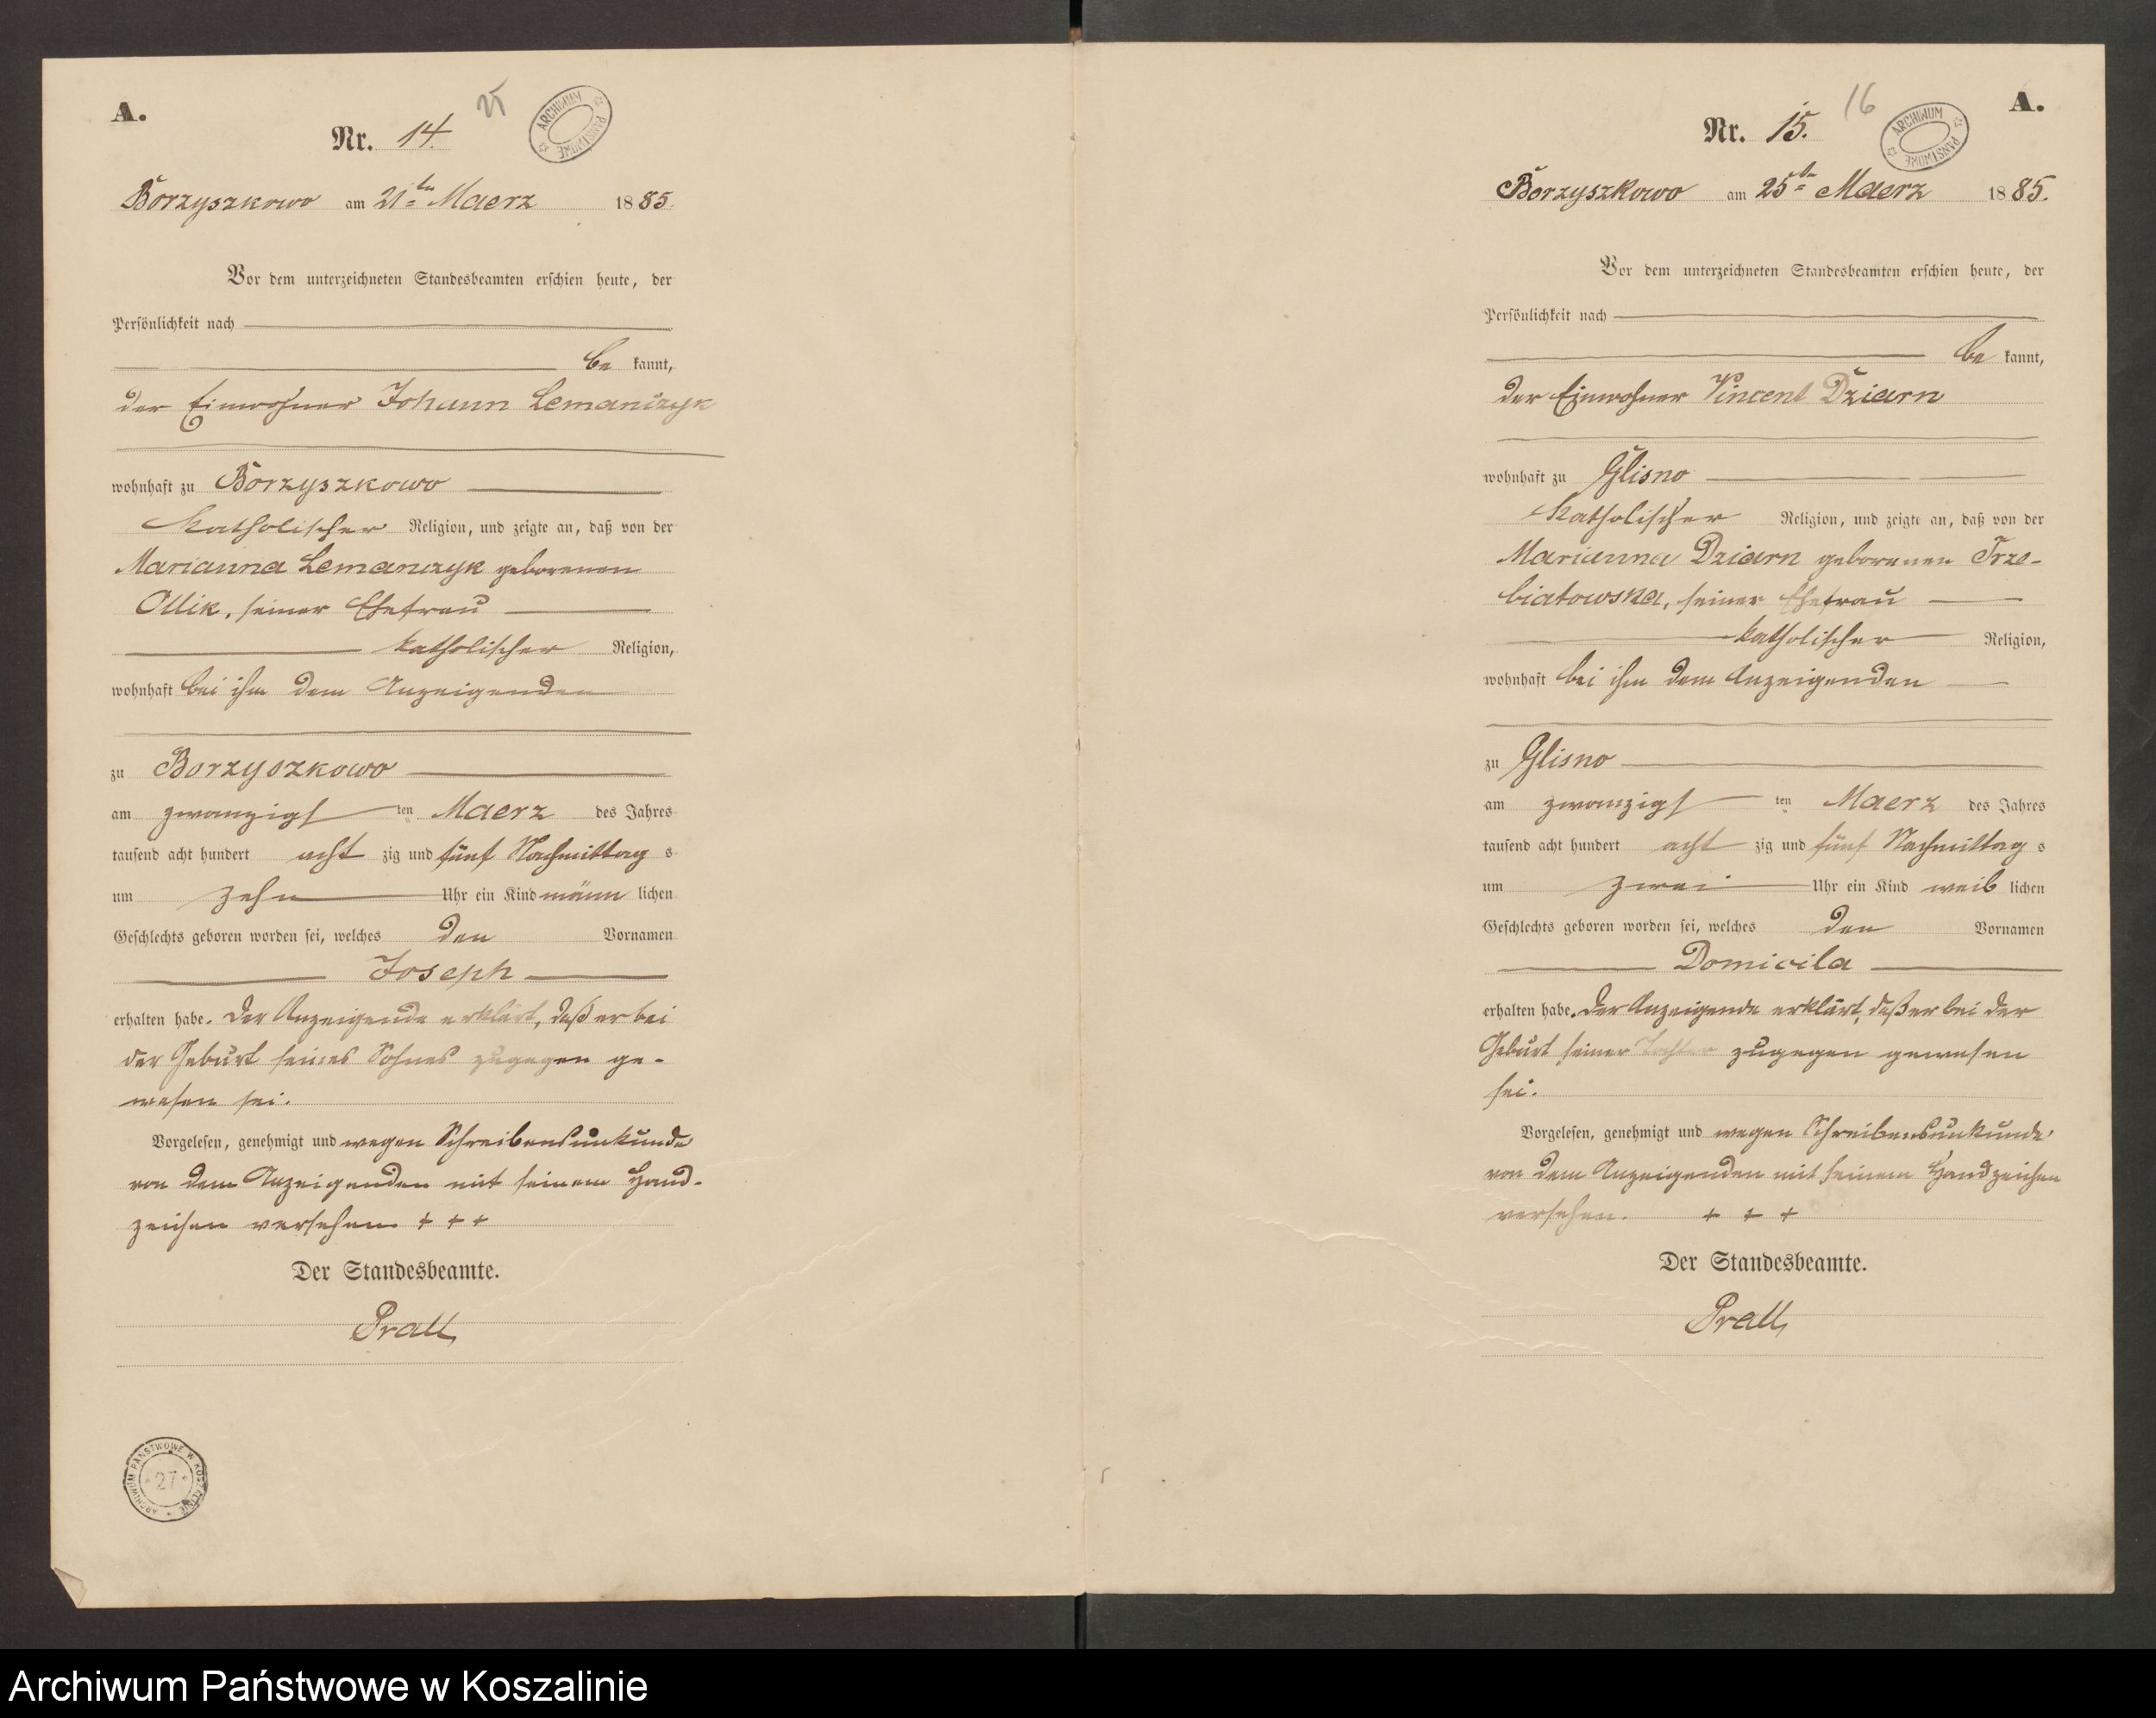 A.
Nr. 14.
Borzyszkowo am 21ten Maerz 1885.
Vor dem unterzeichneten Standesbeamten erschien heute, der
Persönlichkeit nach
be kannt,
der Einwohner Johann Lemanczyk
wohnhaft zu Borzyszkowo
katholischer Religion, und zeigte an, daß von der
Marianna Lemanczyk geborenen
Ollik, seiner Ehefrau
katholischer Religion,
wohnhaft bei ihm dem Anzeigenden
zu Borzyszkowo
am zwanzigsten Maerz des Jahres
tausend acht hundert acht zig und fünf Nachmittag s
um zehn Uhr ein Kind männ lichen
Geschlechts geboren worden sei, welches den Vornamen
Joseph
erhalten habe. Der Anzeigende erklärt, daß er bei
der Geburt seines Sohnes zugegen ge-
wesen sei.
Vorgelesen, genehmigt und wegen Schreibensunkunde
von dem Anzeigenden mit seinem Hand-
zeichen versehen + + +
Der Standesbeamte.
Prall
ARCHIWUM PAŃSTWOWE
ARCHIWUM PAŃSTWOWE W KOSZALINIE
27
16
A.
Nr. 15.
ARCHIWUM PAŃSTWOWE
Borzyszkowo am 25ten Maerz 1885.
Vor dem unterzeichneten Standesbeamten erschien heute, der
Persönlichkeit nach
be kannt,
der Einwohner Vincent Dziarn
wohnhaft zu Glisno
katholischer Religion, und zeigte an, daß von der
Marianna Dziarn geborenen Trze-
biatowska, seiner Ehefrau
katholischer Religion,
wohnhaft bei ihm dem Anzeigenden
zu Glisno
am zwanzigsten Maerz des Jahres
tausend acht hundert acht zig und fünf Nachmittag s
um zwei Uhr ein Kind weib lichen
Geschlechts geboren worden sei, welches den Vornamen
Domicila
erhalten habe. Der Anzeigende erklärt, daß er bei der
Geburt seiner Tochter zugegen gewesen
sei.
Vorgelesen, genehmigt und wegen Schreibensunkunde
von dem Anzeigenden mit seinem Handzeichen
versehen. + + +
Der Standesbeamte.
Prall
Archiwum Państwowe w Koszalinie